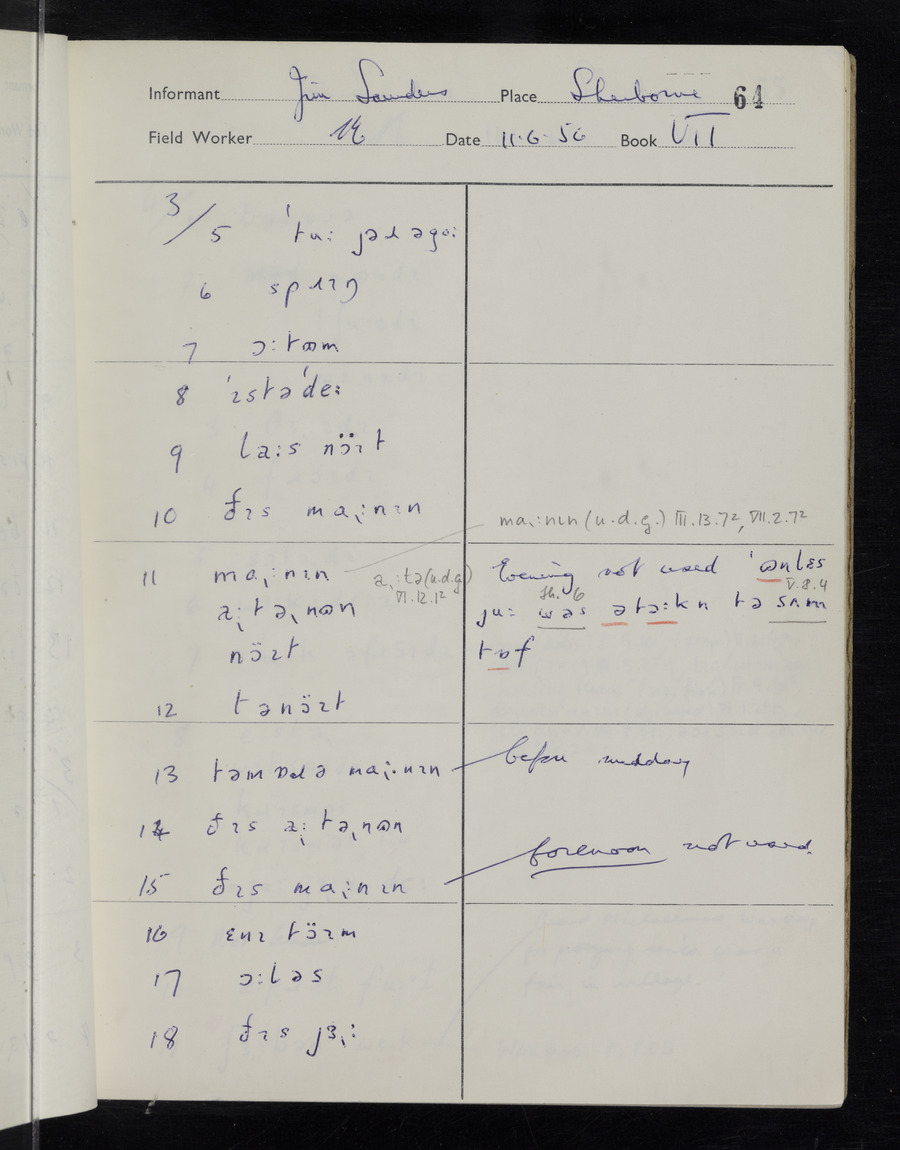 Informant Jim Saunders Place Sherborne 64
Field Worker Date 11.6.56 Book VII
3/5 ˈtuː jəɹ əgoː
6 spɹɪŋ
7 ɔːtəm
8 ˈɪstəˈdeː
9 laːs nɔ̈ɪt
10 ðɪs maˌːnɪn
maˌːnɪn (u.d.g.) III.13.7², VII.2.7²
11 maˌːnɪn aˌːtə (u.d.g) VI.12.1²
aˌːtəˌnən
nɔ̈ɪt
Evening not used ˈɒnlɛs
V.8.4
juː wəs ətɔːkn tə sʌm
12 tənɔ̈ɪt
13 təmɒɹə maˌːnɪn before midday
14 ðɪs aˌːtəˌnən
15 ðɪs maˌːnɪn forenoon not used.
16 ɛnɪ tɔ̈ɪm
17 ɔːləs
18 ðɪs jɜˌː